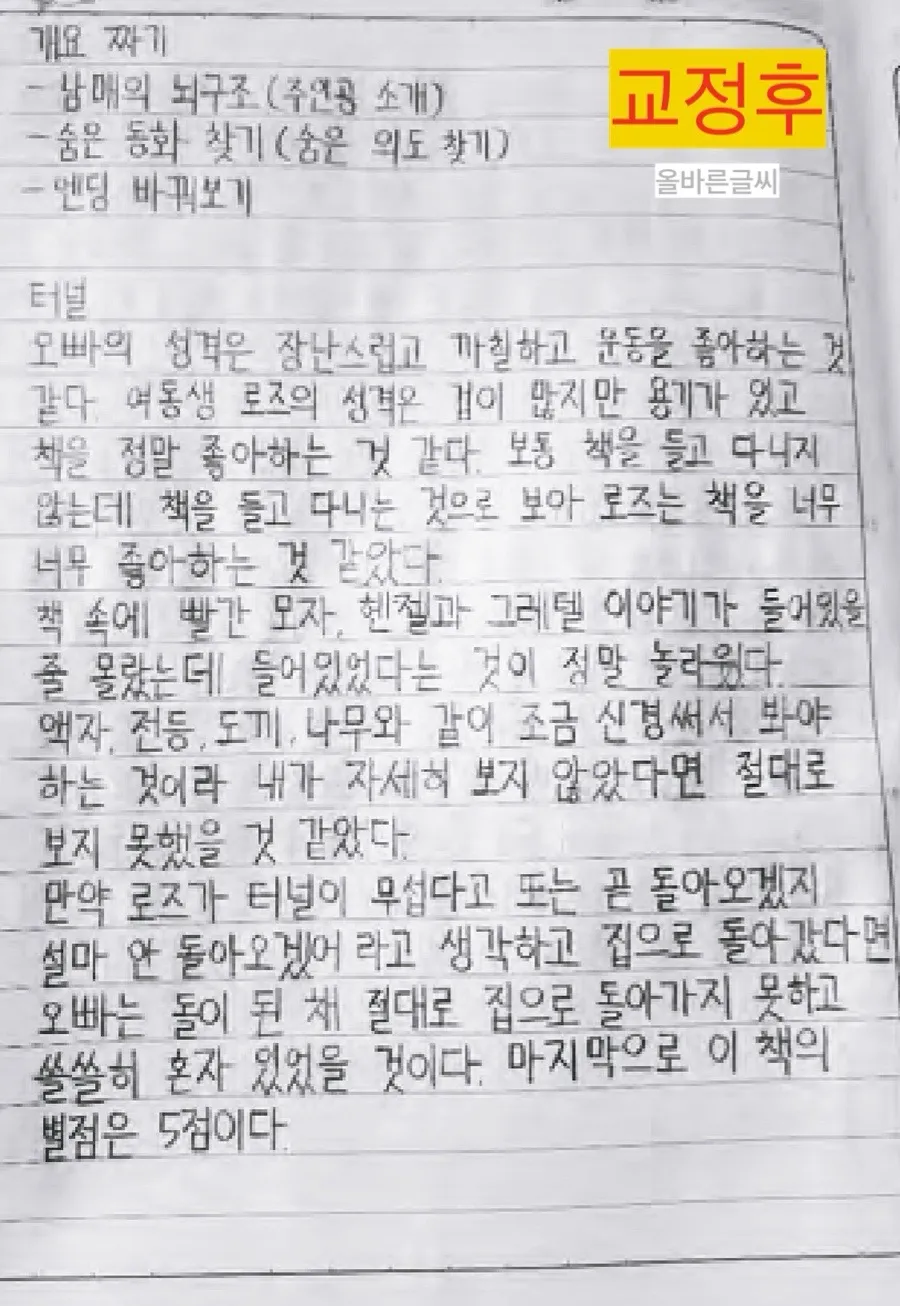 개요 짜기
교정후
- 남매의 뇌구조 (주인공 소개)
- 숨은 동화 찾기 (숨은 의도 찾기)
올바른글씨
- 엔딩 바꿔보기
터널
오빠의 성격은 장난스럽고 까칠하고 운동을 좋아하는 것
같다. 여동생 로즈의 성격은 겁이 많지만 용기가 있고
책을 정말 좋아하는 것 같다. 보통 책을 들고 다니지
않는데 책을 들고 다니는 것으로 보아 로즈는 책을 너무
너무 좋아하는 것 같았다.
책 속에 빨간 모자, 헨젤과 그레텔 이야기가 들어있을
줄 몰랐는데 들어있었다는 것이 정말 놀라웠다.
액자, 전등, 도끼, 나무와 같이 조금 신경써서 봐야
하는 것이라 내가 자세히 보지 않았다면 절대로
보지 못했을 것 같았다.
만약 로즈가 터널이 무섭다고 또는 곧 돌아오겠지
설마 안 돌아오겠어 라고 생각하고 집으로 돌아갔다면
오빠는 돌이 된 채 절대로 집으로 돌아가지 못하고
쓸쓸히 혼자 있었을 것이다. 마지막으로 이 책의
별점은 5점이다.